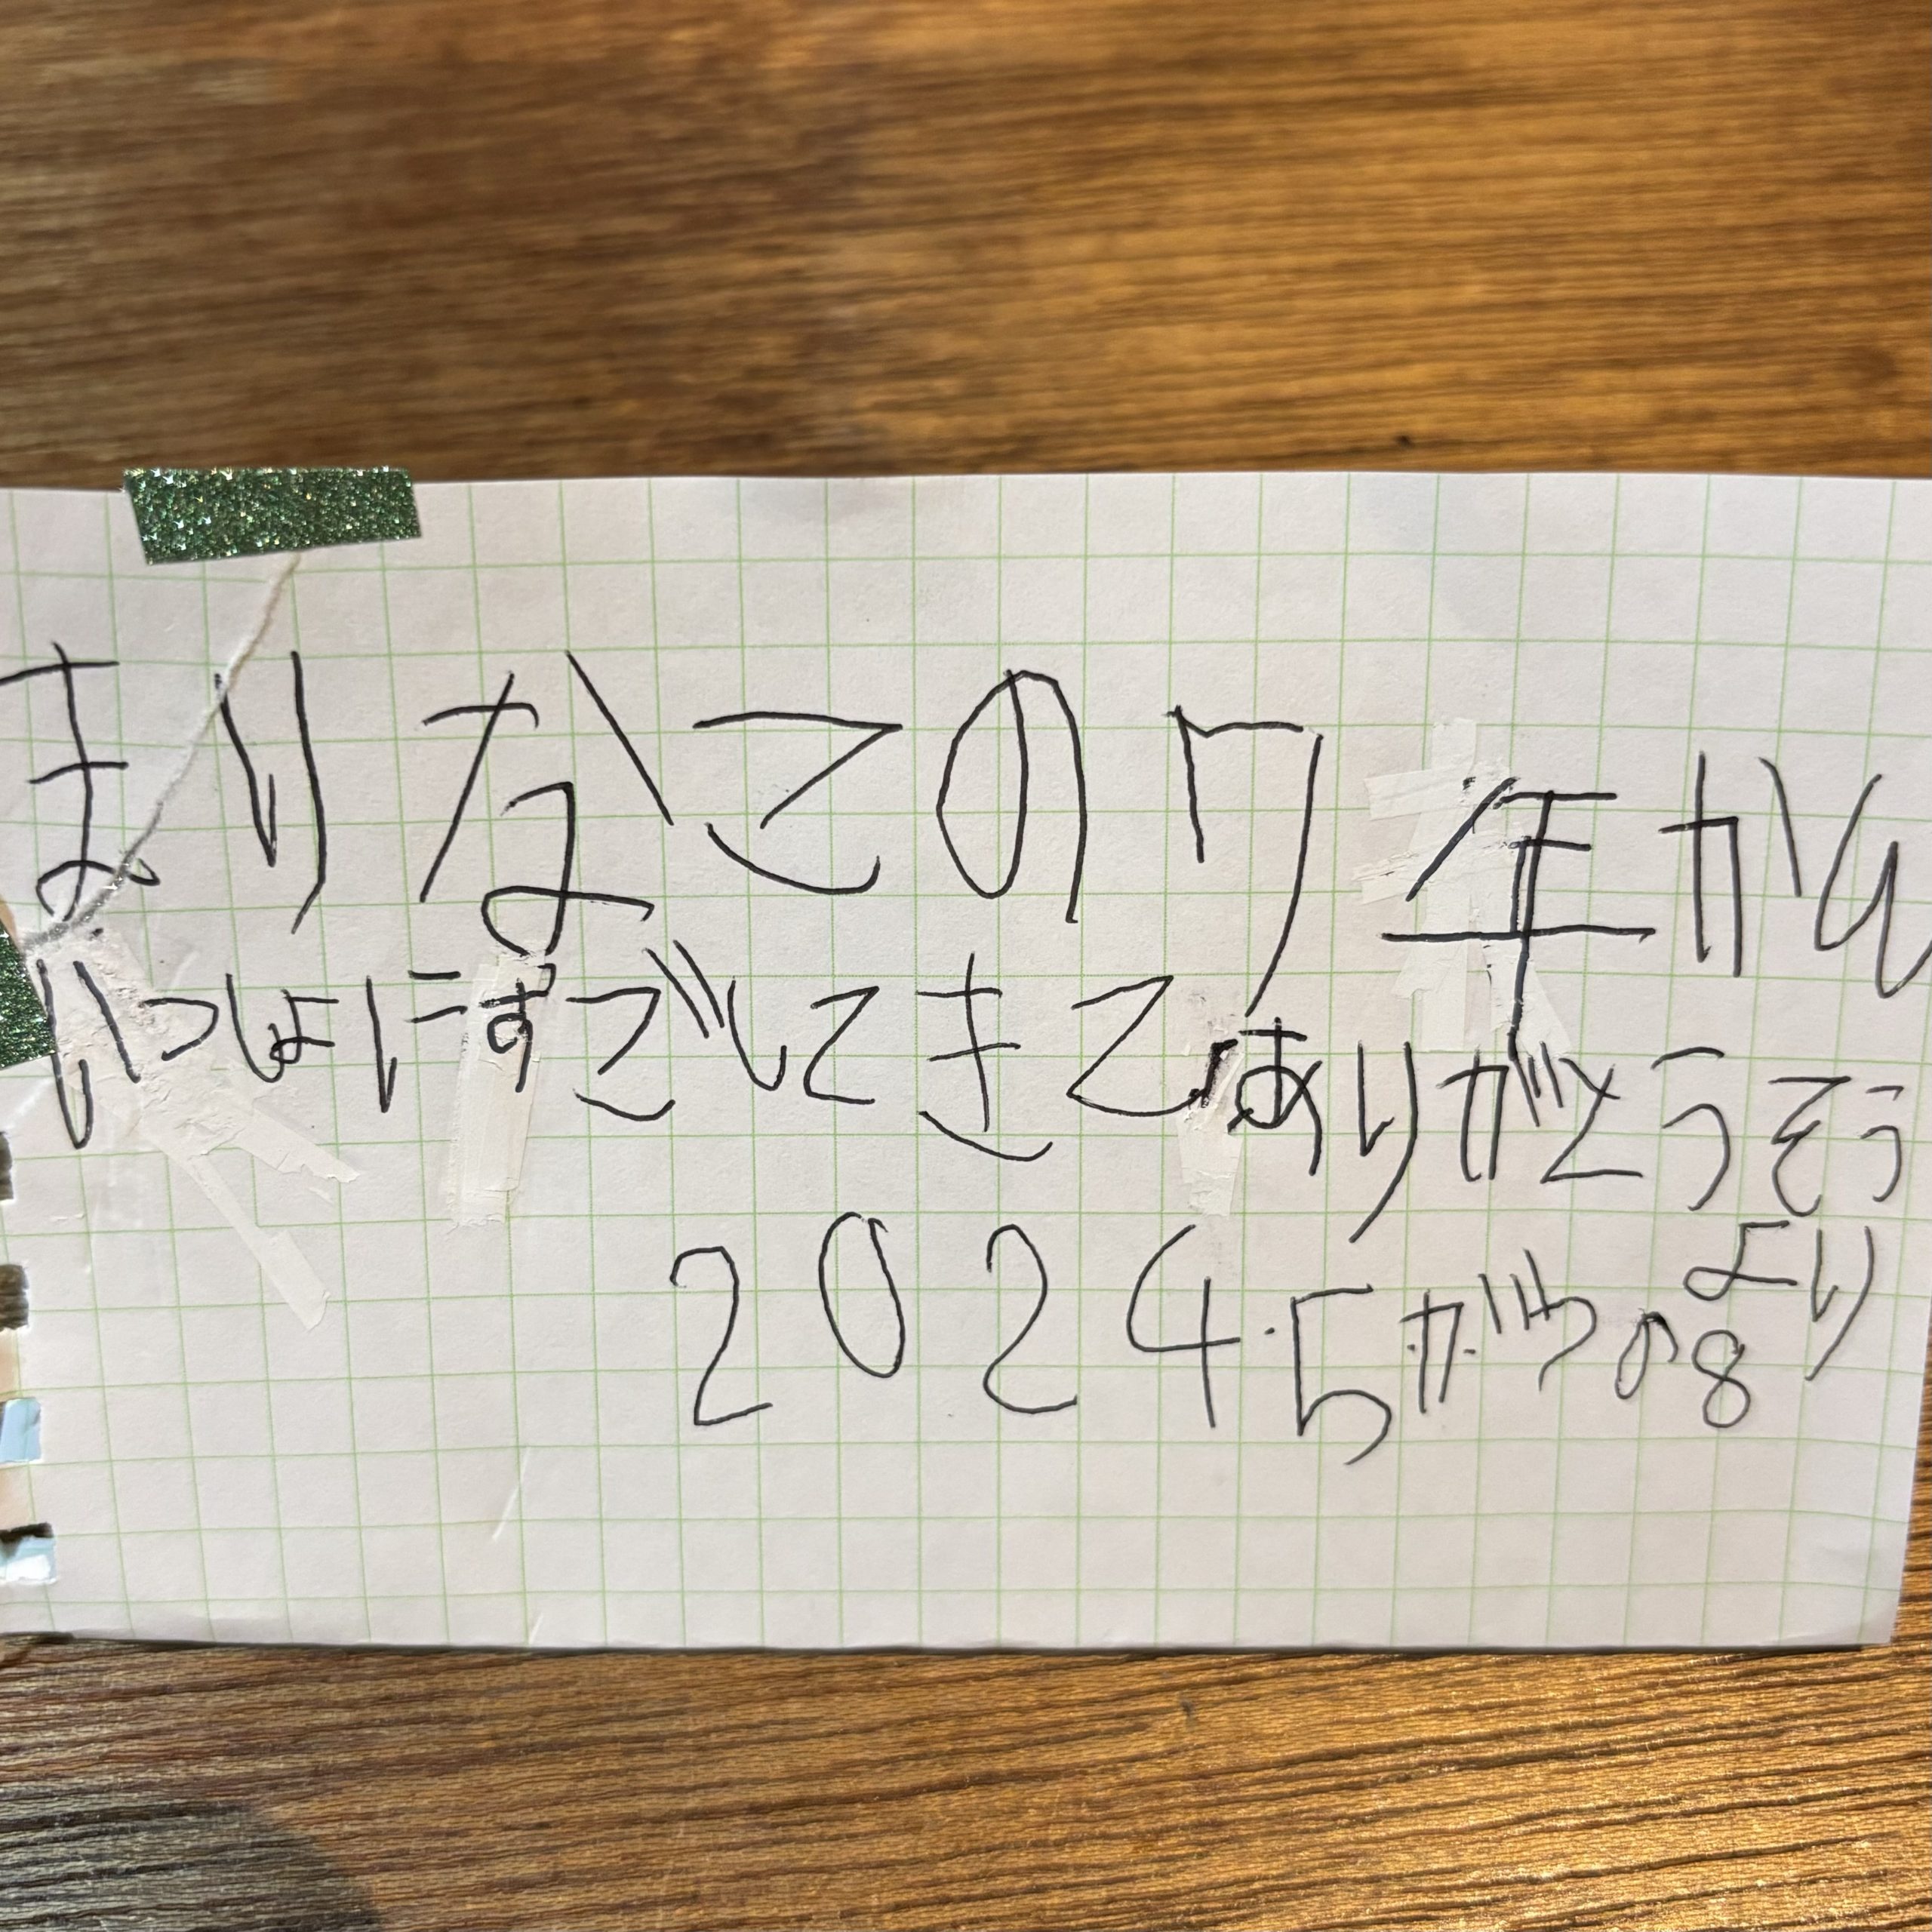 まりなこの7年かん
いっしょにすごしてきて、ありがとうそう
より
2024.5がつの8